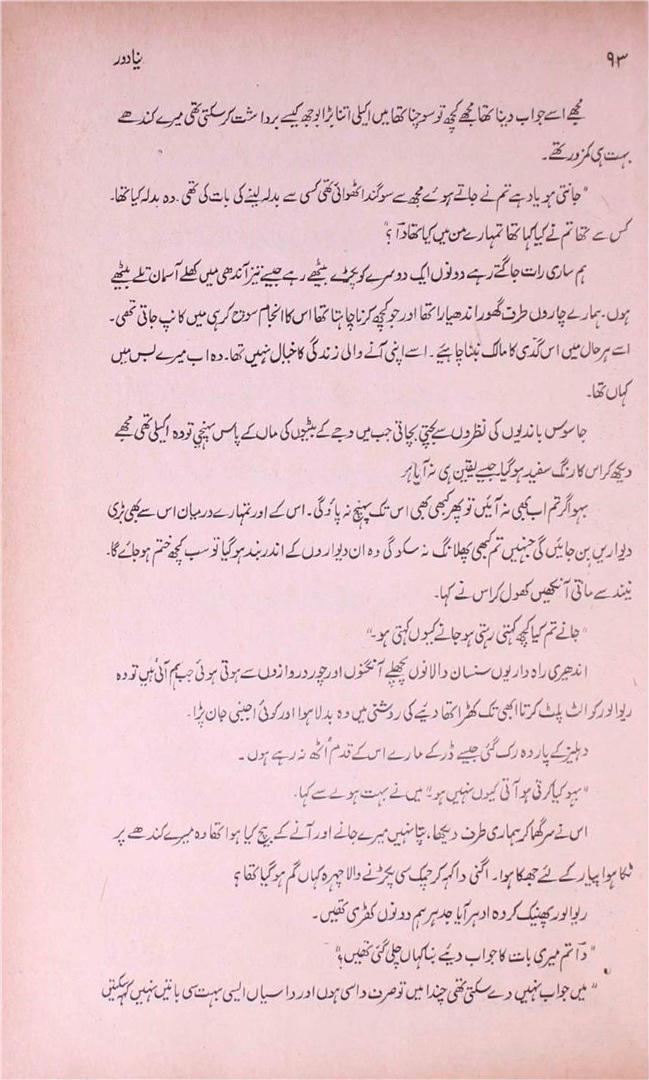 ۹۳
نیا دور
مجھے اسے جواب دینا تھا مجھے کچھ تو سوچنا تھا میں اکیلی اتنا بڑا بوجھ کیسے برداشت کر سکتی تھی میرے کندھے
بہت ہی کمزور تھے۔
"جانتی ہو یاد ہے تم نے جاتے ہوئے مجھ سے سوگند اٹھوائی تھی کسی سے بدلہ لینے کی بات کی تھی۔ وہ بدلہ کیا تھا۔
کس سے تھا تم نے کیا کہا تھا تمہارے من میں کیا تھا دآ؟"
ہم ساری رات جاگتے رہے دونوں ایک دوسرے کو پکڑے بیٹھے رہے جیسے تیز آندھی میں کھلے آسمان تلے بیٹھے
ہوں۔ ہمارے چاروں طرف گھور اندھیارا تھا اور جو کچھ کرنا چاہتا تھا اس کا انجام سوچ کر ہی میں کانپ جاتی تھی۔
اسے ہر حال میں اس گدی کا مالک بننا چاہیئے۔ اسے اپنی آنے والی زندگی کا خیال نہیں تھا۔ وہ اب میرے بس میں
کہاں تھا۔
جاسوس باندیوں کی نظروں سے بچتی بچاتی جب میں وجے کے بیٹیوں کی ماں کے پاس پہنچی تو وہ اکیلی تھی مجھے
دیکھ کر اس کا رنگ سفید ہو گیا جیسے یقین ہی نہ آیا ہر
بہو اگر تم اب بھی نہ آئیں تو پھر کبھی بھی اس تک پہنچ نہ پاؤ گی۔ اس کے اور تمہارے درمیان اس سے بھی بڑی
دیواریں بن جائیں گی جنہیں تم کبھی پھلانگ نہ سکو گی وہ ان دیواروں کے اندر بند ہو گیا تو سب کچھ ختم ہو جائے گا۔
نیند سے ماتی آنکھیں کھول کر اس نے کہا۔
"جانے تم کیا کچھ کہتی رہتی ہو جانے کیوں کہتی ہو۔"
اندھیری راہ داریوں سنسان دالانوں پچھلے آنگنوں اور چور دروازوں سے ہوتی ہوئی جب ہم آئی ہیں تو وہ
ریوالور کو الٹ پلٹ کرتا ابھی تک کھڑا تھا دیئے کی روشنی میں وہ بدلا ہوا اور کوئی اجنبی جان پڑا۔
دہلیز کے پار وہ رک گئی جیسے ڈر کے مارے اس کے قدم اُٹھ نہ رہے ہوں۔
"بہو کیا کرتی ہو آتی کیوں نہیں ہو" میں نے بہت ہولے سے کہا۔
اس نے سر گھما کر ہماری طرف دیکھا، پتا نہیں میرے جانے اور آنے کے بیچ کیا ہوا تھا وہ میرے کندھے پر
ٹکا ہوا پیار کے لئے جھکا ہوا۔ اگنی دا کہہ کر چپک سی پکڑنے والا چہرہ کہاں گم ہو گیا تھا؟
ریوالور پھینک کر وہ ادھر آیا جدھر ہم دونوں کھڑی تھیں۔
"دآ تم میری بات کا جواب دیئے بنا کہاں چلی گئی تھیں؟"
"میں جواب نہیں دے سکتی تھی چندا میں تو صرف داسی ہوں اور داسیاں ایسی بہت سی باتیں نہیں کہہ سکتیں